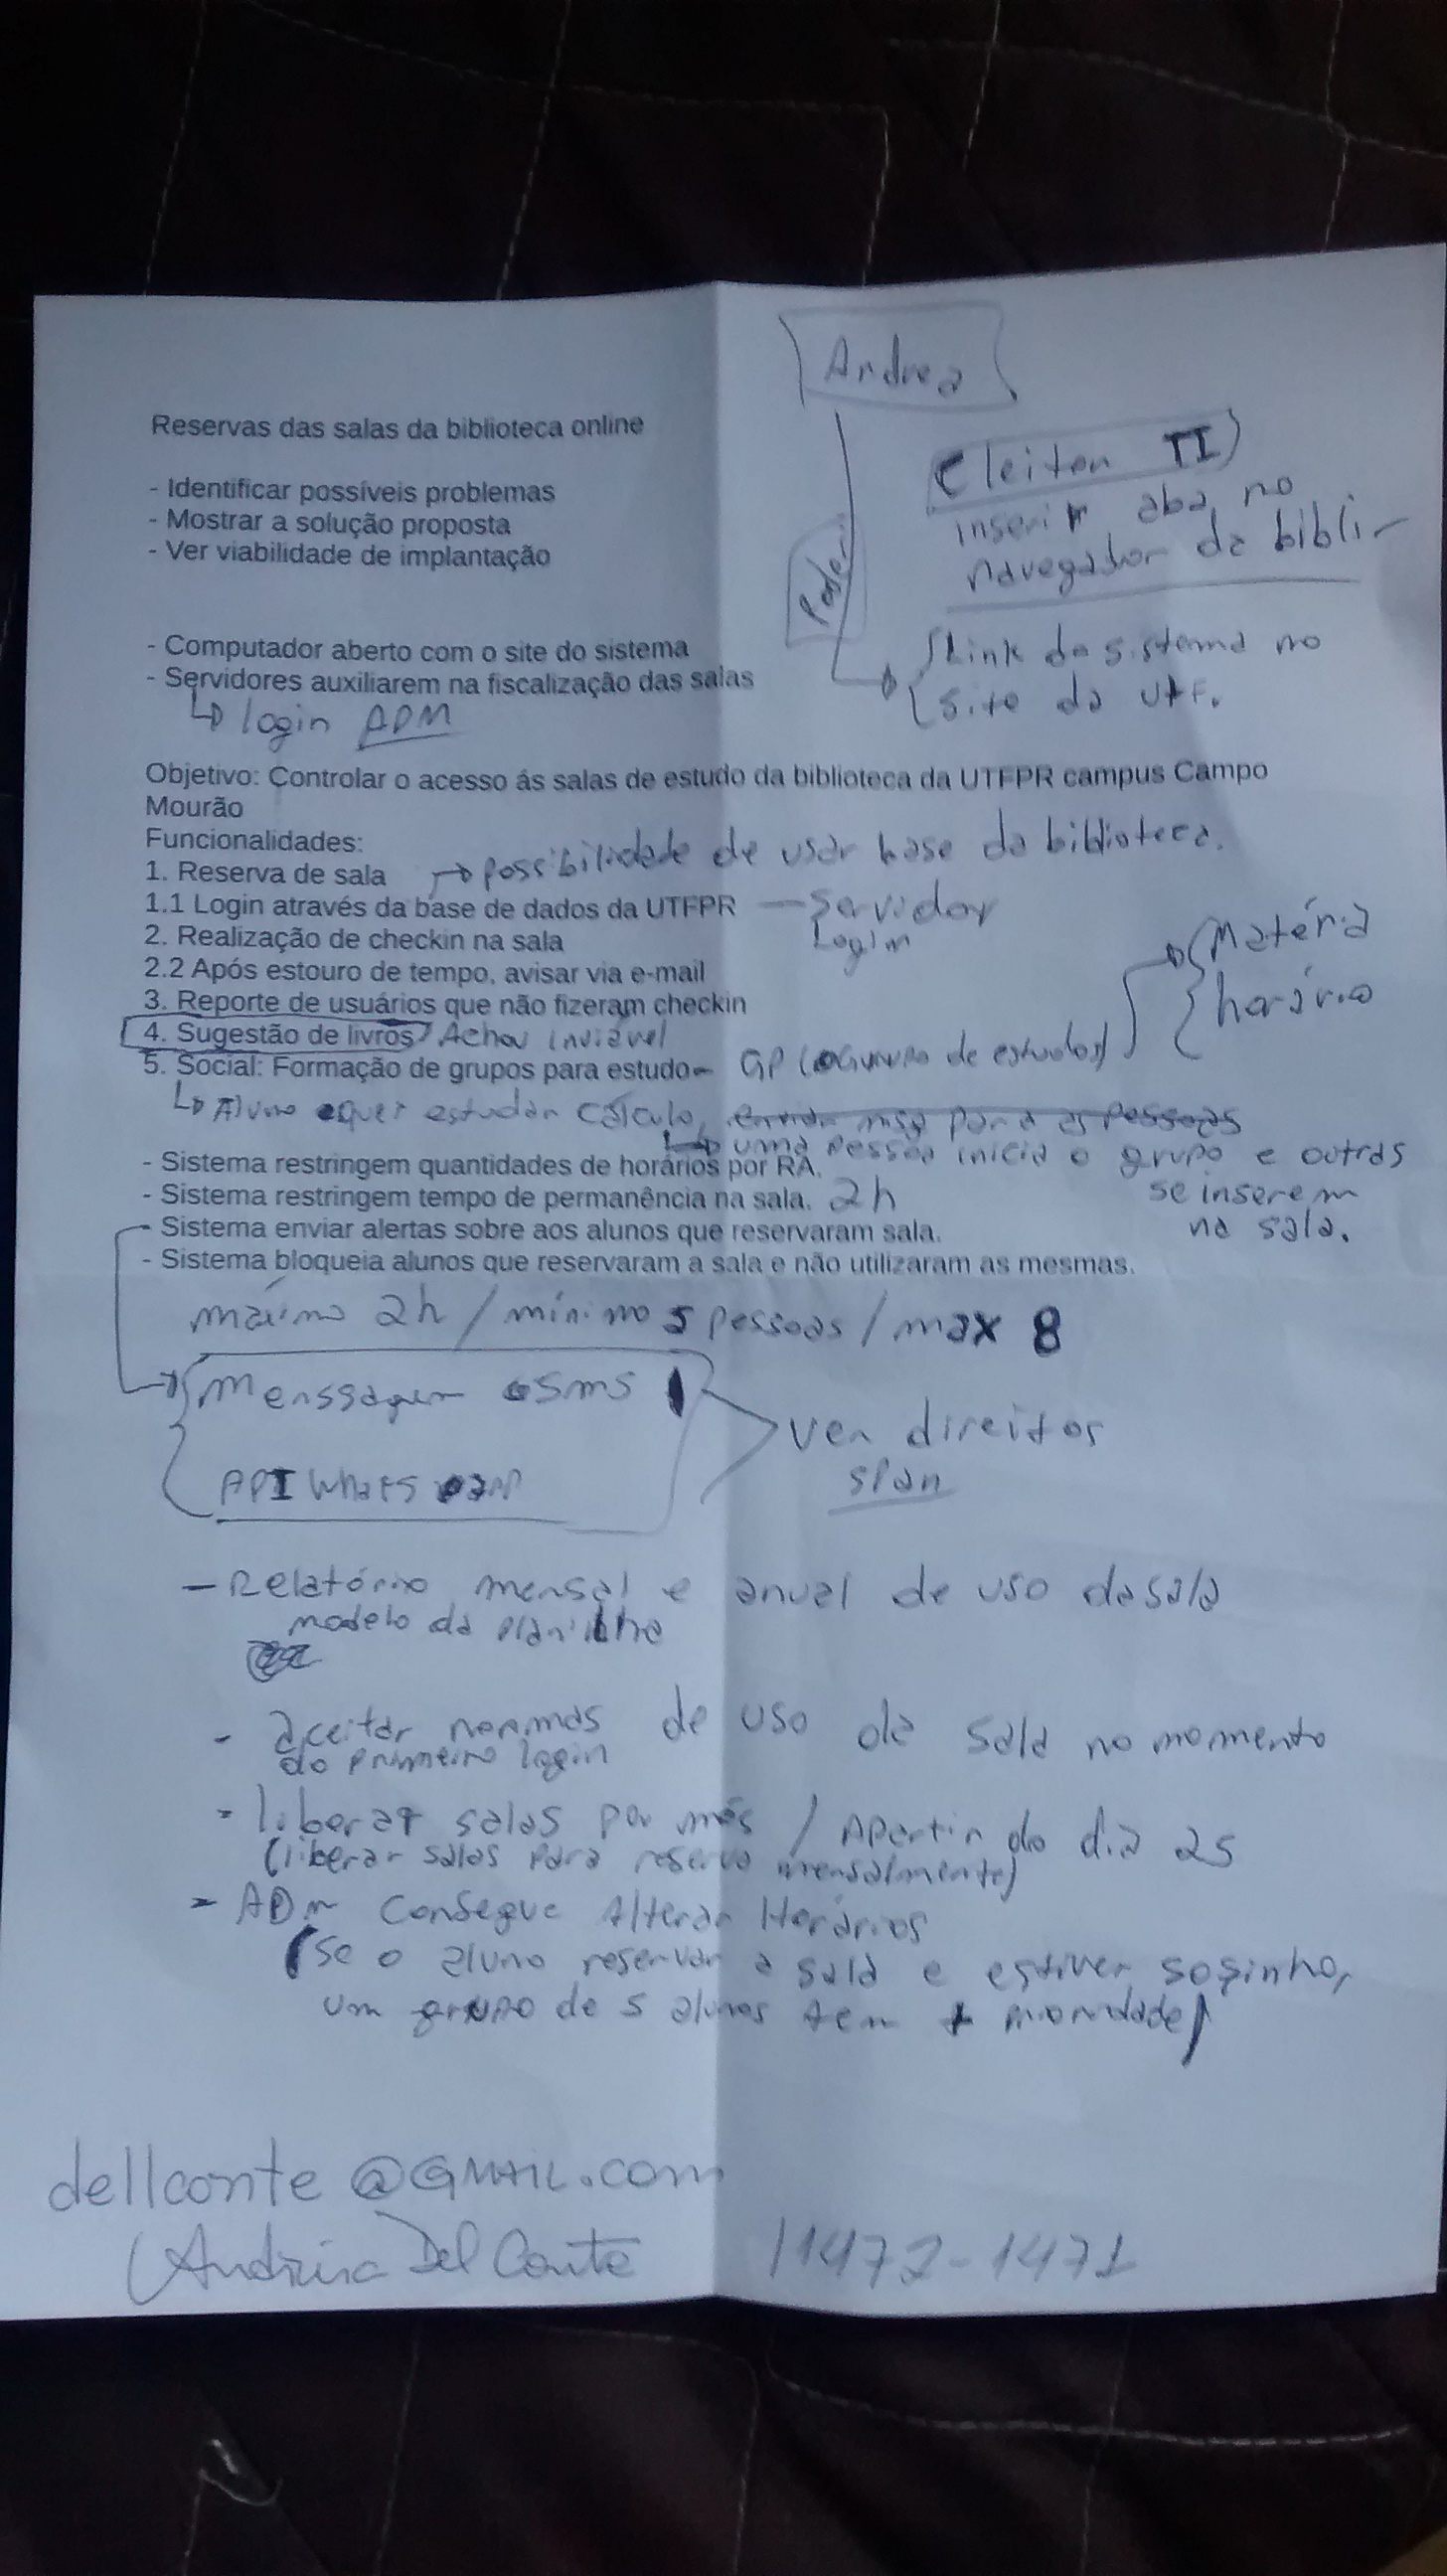 Andrea
Reservas das salas da biblioteca online
Cleiton TI
- Identificar possíveis problemas
inserir aba no
- Mostrar a solução proposta
navegador da bibli-
- Ver viabilidade de implantação
- Computador aberto com o site do sistema
Link do sistema no
- Servidores auxiliarem na fiscalização das salas
site da UTF.
login ADM
Objetivo: Controlar o acesso ás salas de estudo da biblioteca da UTFPR campus Campo
Mourão
Funcionalidades:
possibilidade de usar base da biblioteca.
1. Reserva de sala
1.1 Login através da base de dados da UTFPR — Servidor
Login
2. Realização de checkin na sala
Matéria
2.2 Após estouro de tempo, avisar via e-mail
horário
3. Reporte de usuários que não fizeram checkin
4. Sugestão de livros Achou inviável
5. Social: Formação de grupos para estudo - GP (Grupo de estudos)
Aluno quer estudar cálculo, msg para as pessoas
uma pessoa inicia o grupo e outras
se inserem
na sala.
- Sistema restringem quantidades de horários por RA.
- Sistema restringem tempo de permanência na sala. 2h
- Sistema enviar alertas sobre aos alunos que reservaram sala.
- Sistema bloqueia alunos que reservaram a sala e não utilizaram as mesmas.
máximo 2h / mínimo 5 pessoas / max 8
Menssagem SMS
ver direitos
span
API Whatsapp
- Relatório mensal e anual de uso da sala
modelo da planilha
- aceitar normas de uso da sala no momento
do primeiro login
- liberar salas por mês / Apartir do dia 25
(liberar salas para reserva mensalmente)
- ADM consegue Alterar Horários
(se o aluno reservar a sala e estiver sozinho,
um grupo de 5 alunos tem + prioridade)
dellconte@GMAIL.com
Andréia Del Conte / 1472-1471